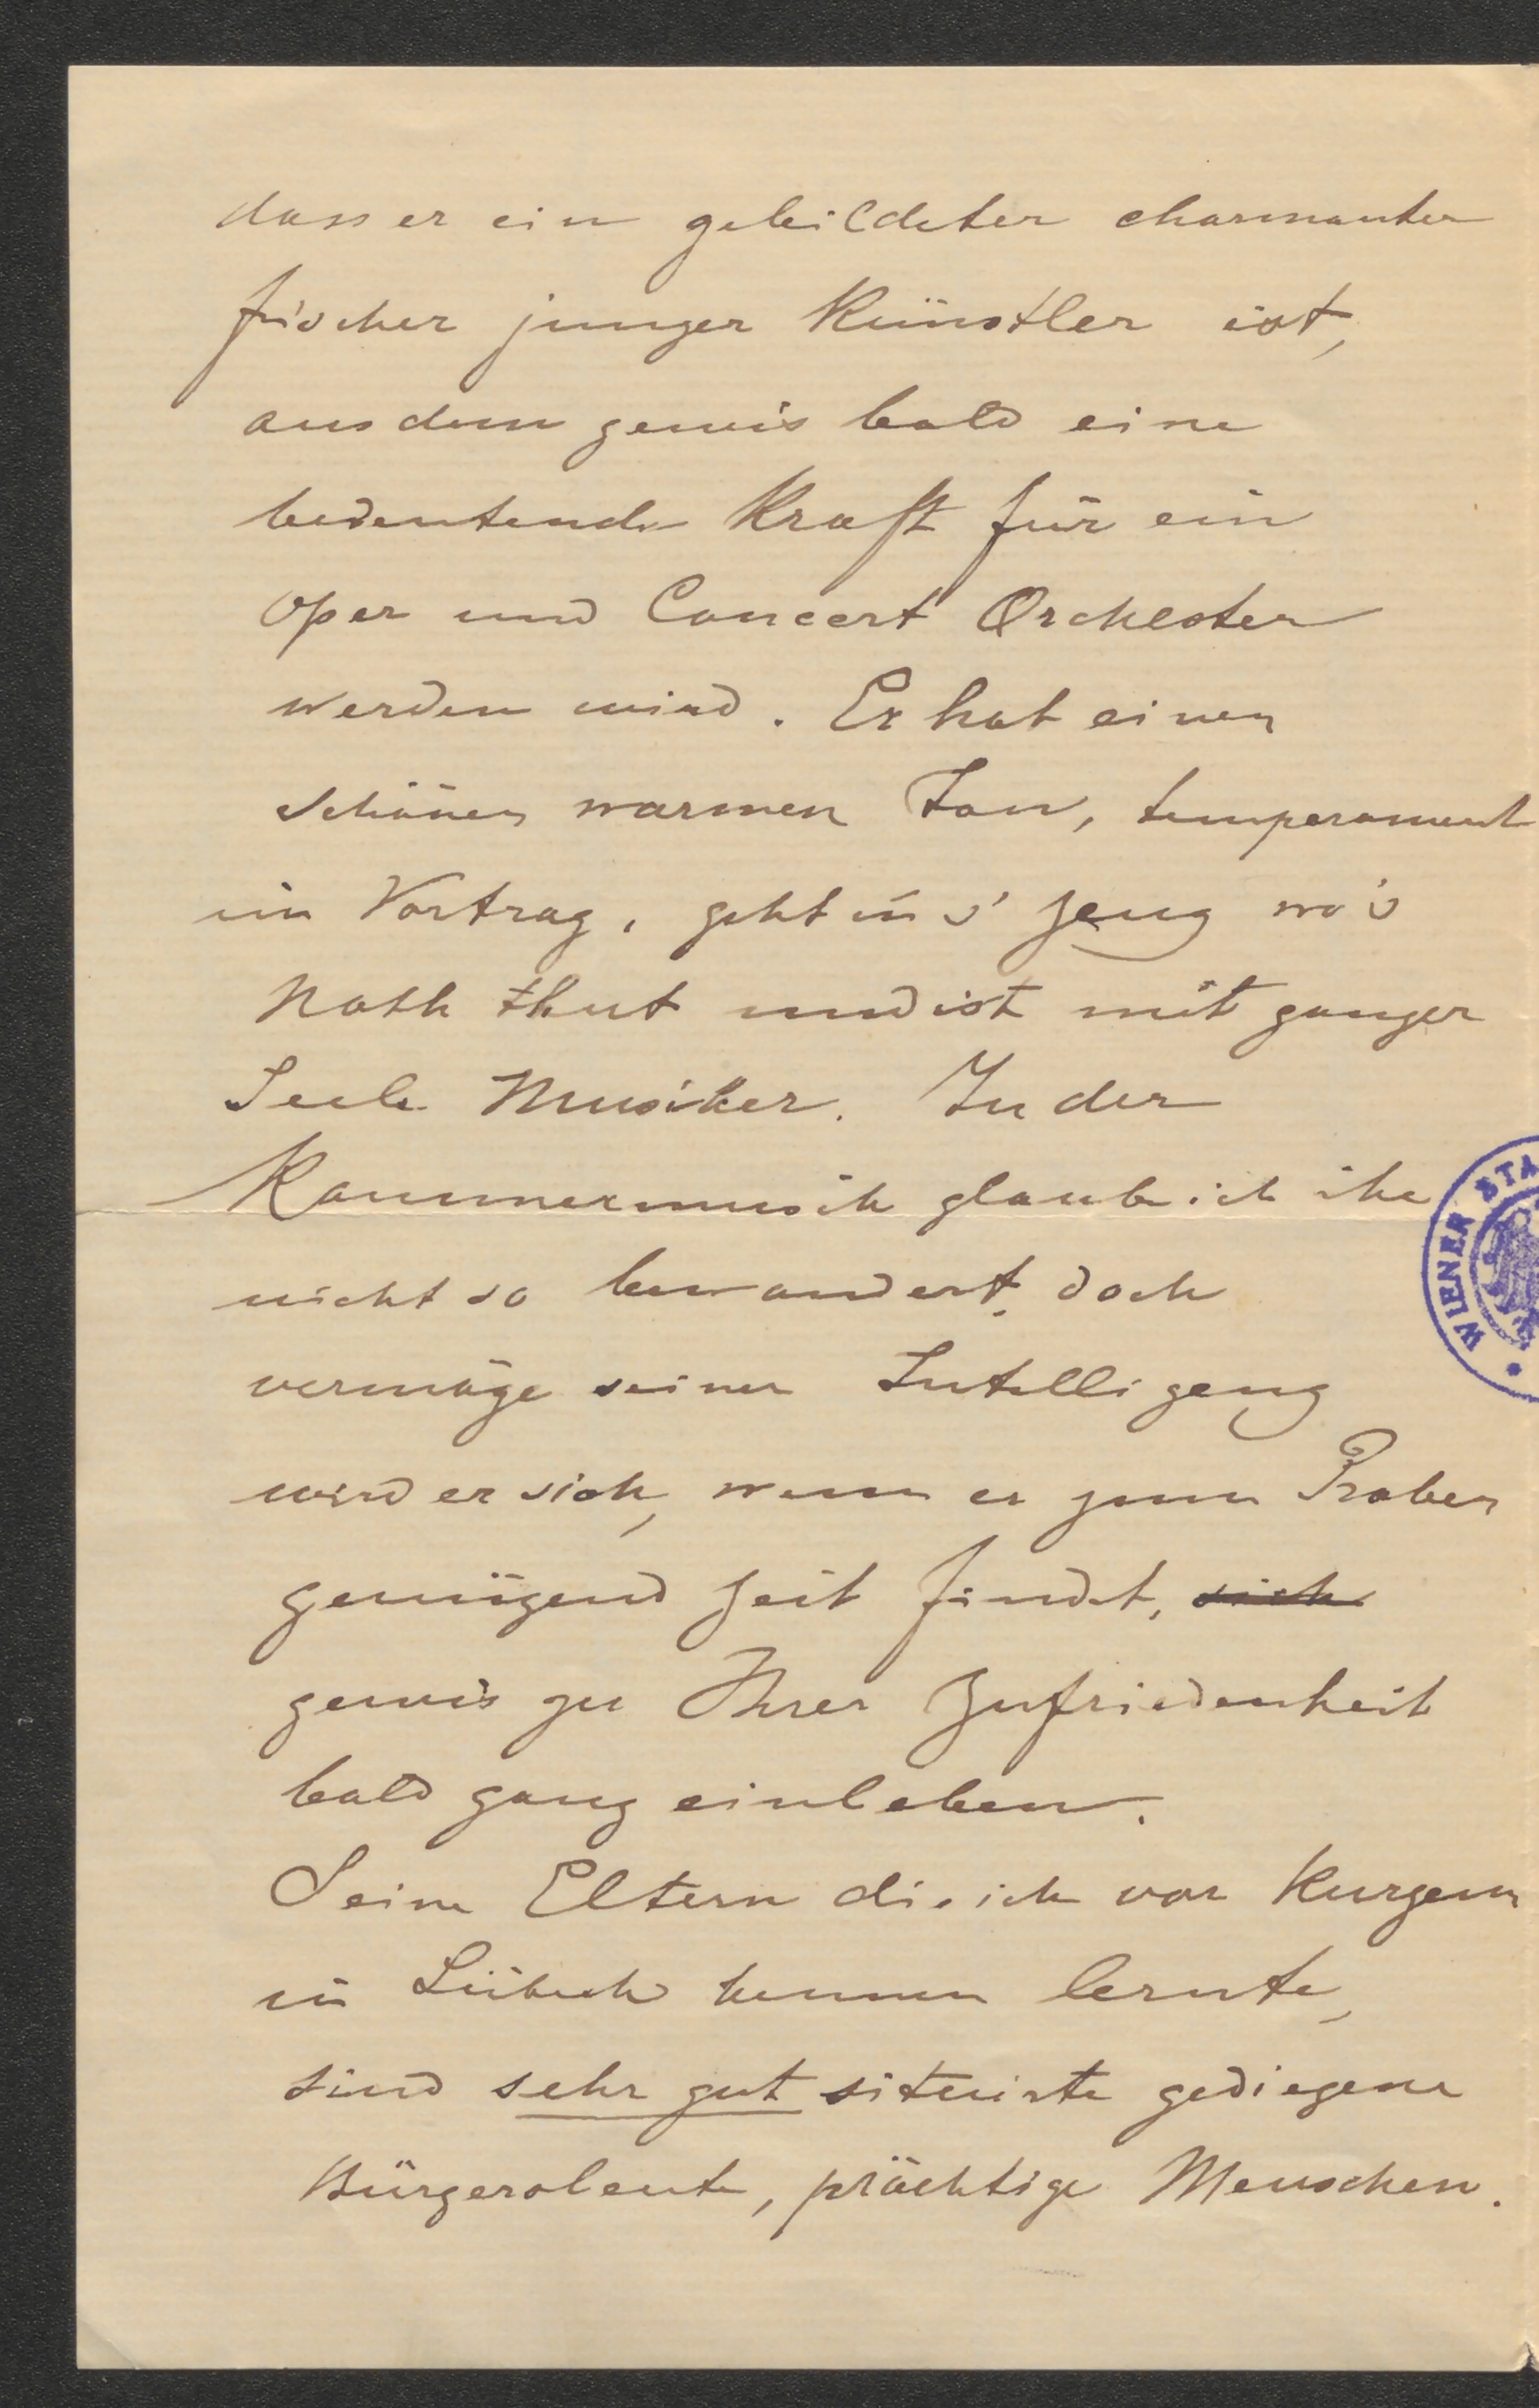 dass er ein gebildeter charmanter
frischer junger Künstler ist,
aus dem gewis bald eine
bedeutende Kraft für ein
Oper und Concert Orchester
werden wird. Er hat einen
schönen warmen Ton, temperament
im Vortrag, geht in's Zeug wo's
Noth thut und ist mit ganzer
Seele Musiker. In der
Kammermusik glaube ich ihn
nicht so bewandert, doch
vermöge seiner Intelligenz
wird er sich, wenn er zum Proben
genügend Zeit findet, sich
gewis zu Ihrer Zufriedenheit
bald ganz einleben.
Seine Eltern die ich vor Kurzem
in Lübeck kennen lernte,
sind sehr gut situirte gediegene
Bürgersleute, prächtige Menschen.
WIENER STA